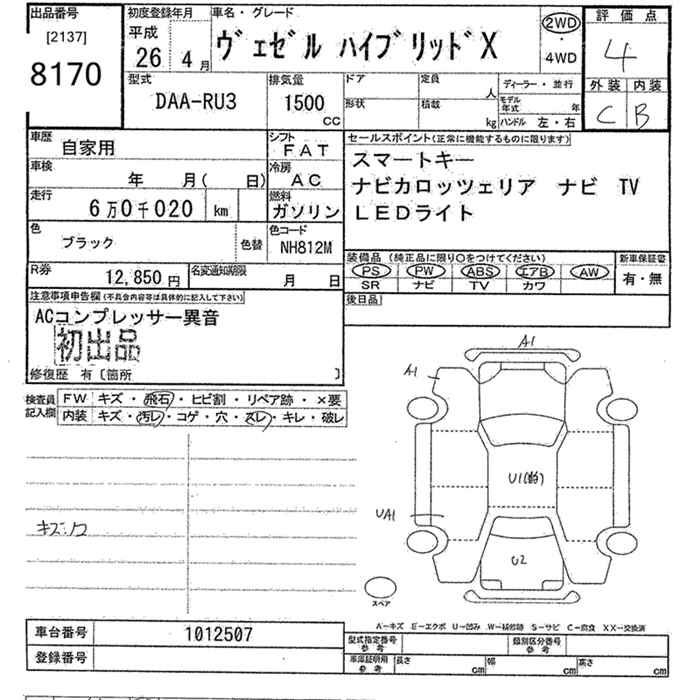 出品番号
[2137]
8170
初度登録年月
平成
26 4月
車名・グレード
ヴェゼル ハイブリッド X
2WD
・
4WD
評価点
4
外装 内装
C B
型式
DAA-RU3
排気量
1500
CC
ドア
形状
定員
人
積載
kg
ディーラー・並行
モデル年式 年
ハンドル 左・右
車歴
自家用
シフト
FAT
車検
年 月( 日)
冷房
AC
走行
6万0千020 km
燃料
ガソリン
色
ブラック
色替
色コード
NH812M
R券
12,850円
名変通知期限
月 日
セールスポイント(正常に機能するものに限ります)
スマートキー
ナビカロッツェリア ナビ TV
LEDライト
装備品 (純正品に限り○をつけてください)
PS PW ABS エアB AW
SR ナビ TV カワ
新車保証書
有・無
後日品
注意事項申告欄(不具合内容等は具体的に記入して下さい)
ACコンプレッサー異音
初出品
修復歴 有〔箇所 〕
検査員
記入欄
FW キズ・飛石・ヒビ割・リペア跡・×要
内装 キズ・汚レ・コゲ・穴・スレ・キレ・破レ
キズ・凹
A1
A1
U1(前)
UA1
U2
スペア
A-キズ E-エクボ U-凹み W-補修跡 S-サビ C-腐食 XX-交換済
車台番号 1012507
登録番号
型式指定番号
参考
類別区分番号
参考
車庫証明用
参考
長さ cm
幅 cm
高さ cm